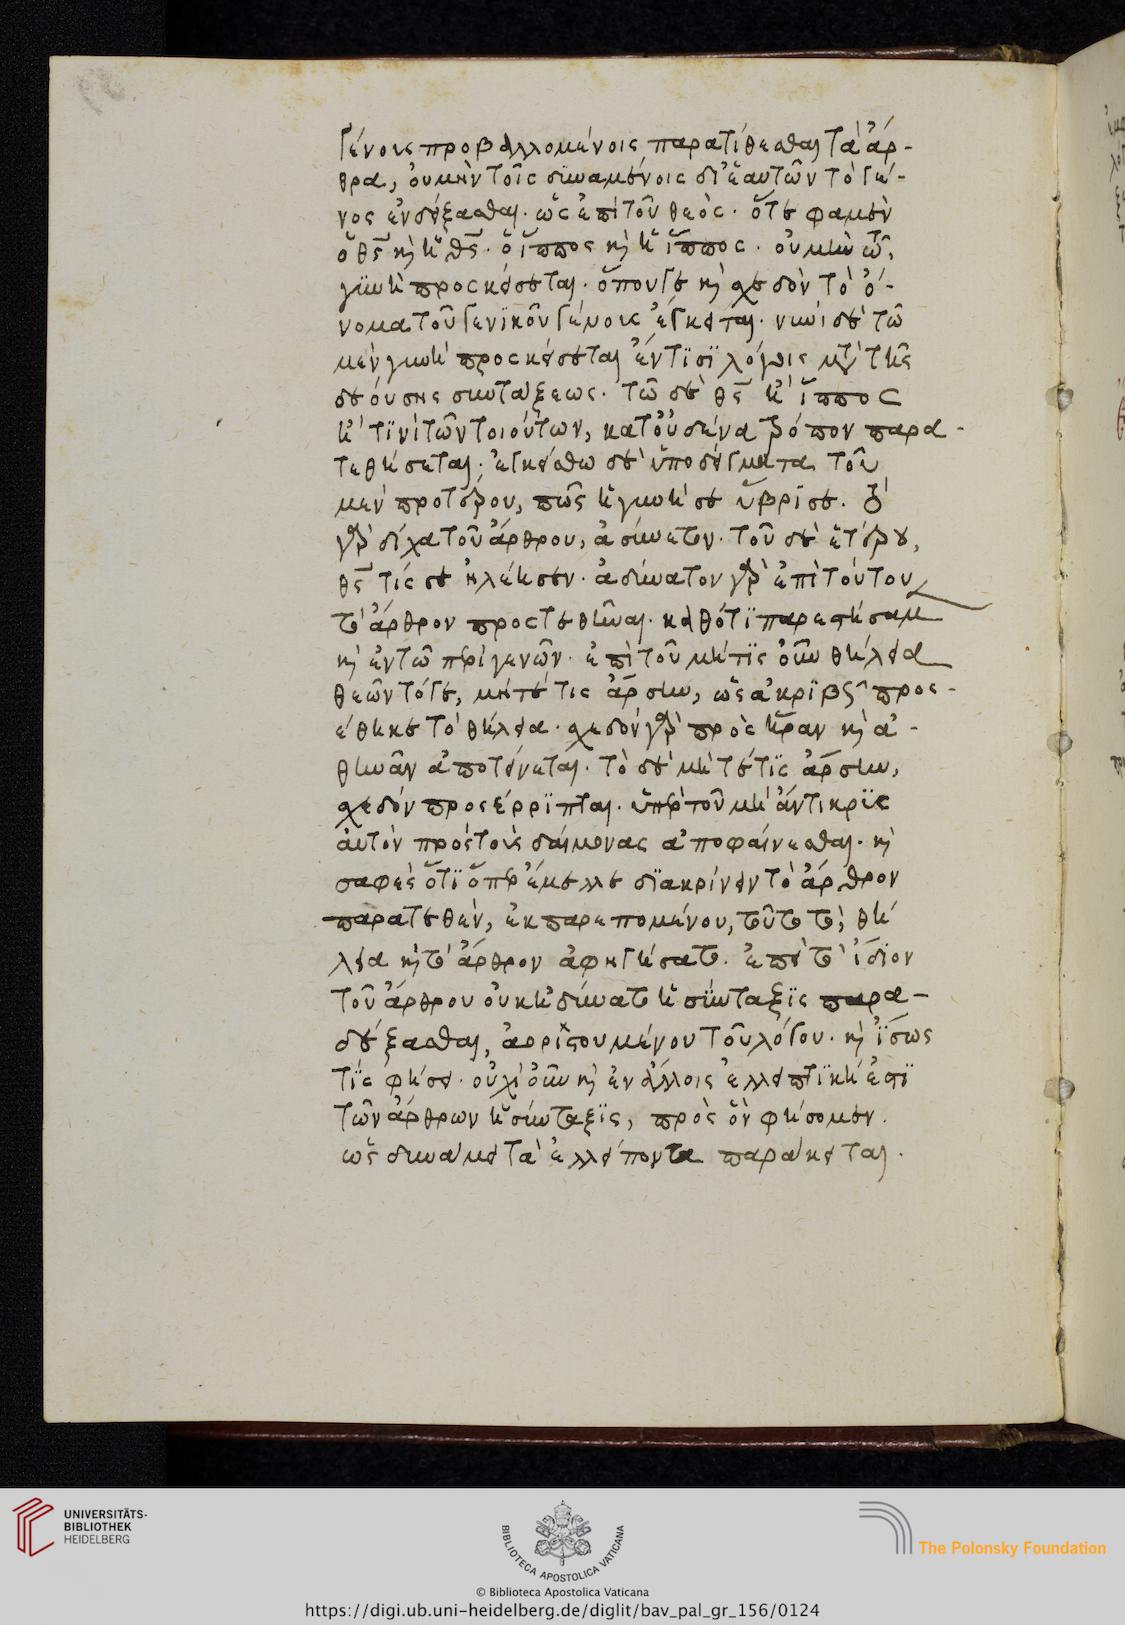 γένοις προβαλλομένοις παρατίθεσθαι τὰ ἄρ-
θρα, οὐ μὴν τοῖς δυναμένοις δι' ἑαυτῶν τὸ γέ-
νος ἐνδείξασθαι. ὡς ἐπὶ τοῦ θεὸς. ὅτε φαμὲν
ὁ θς καὶ ἡ θς. ὁ ἵππος καὶ ἡ ἵππος. οὐ μὴν τῶ,
γυνὴ προσκείσεται. ὅπου γε καὶ σχεδὸν τὸ ὄ-
νομα τοῦ γενικοῦ γένους ἔγκειται. νυνὶ δὲ τῶ
μὲν γυνὴ προσκείσεται ἔν τισι λόγοις μετὰ τῆς
δεούσης συντάξεως. τῶ δὲ θς ἢ ἵππος
ἤ τινι τῶν τοιούτων, κατ' οὐδένα τρόπον παρα-
τεθήσεται. ἐκκείσθω δὲ ὑποδείγματα τοῦ
μὲν προτέρου, πῶς ἡ γυνή σε ὕβρισε.
γὰρ δίχα τοῦ ἄρθρου, ἀσύνετον. τοῦ δὲ ἑτέρου,
θς τίς σε ἠλέησεν. ἀδύνατον γὰρ ἐπὶ τούτου
τὸ ἄρθρον προστεθῆναι. καθότι παρεστήσαμεν
καὶ ἐν τῶ περὶ γενῶν. ἐπὶ τοῦ μήτις οὖν θήλεια
θεῶν τόγε, μήτέ τις ἄρσην, ὡς ἀκριβῶς προσ-
έθηκε τὸ θήλεια. σχεδὸν γὰρ πρὸς ἥραν καὶ ἀ-
θηνᾶν ἀποτείνεται. τὸ δὲ μήτέ τις ἄρσην,
σχεδὸν προσέρριπται. ὑπὲρ τοῦ μὴ ἄντικρις
αὐτὸν πρὸς τοὺς δαίμονας ἀποφαίνεσθαι. καὶ
σαφὲς ὅτι ὅπερ ἔμελλε διακρίνειν τὸ ἄρθρον
παρατεθὲν, ἐκ παρεπομένου, τοῦτο τὸ, θή
λεια καὶ τὸ ἄρθρον ἀφηγήσατο. ἐπεὶ τὸ ἴδιον
τοῦ ἄρθρου οὐκ ἠδύνατο ἡ σύνταξις παρα-
δέξασθαι, ἀοριστουμένου τοῦ λόγου. καὶ ἴσως
τὶς φήσει. οὐχὶ οὖν καὶ ἐν ἄλλοις ἐλλειπτική ἐστι
τῶν ἄρθρων ἡ σύνταξις, πρὸς ὃν φήσομεν.
ὡς δυνάμει τὰ ἐλλείποντα παράκειται.
UNIVERSITÄTS-
BIBLIOTHEK
HEIDELBERG
BIBLIOTECA APOSTOLICA VATICANA
The Polonsky Foundation
© Biblioteca Apostolica Vaticana
https://digi.ub.uni-heidelberg.de/diglit/bav_pal_gr_156/0124